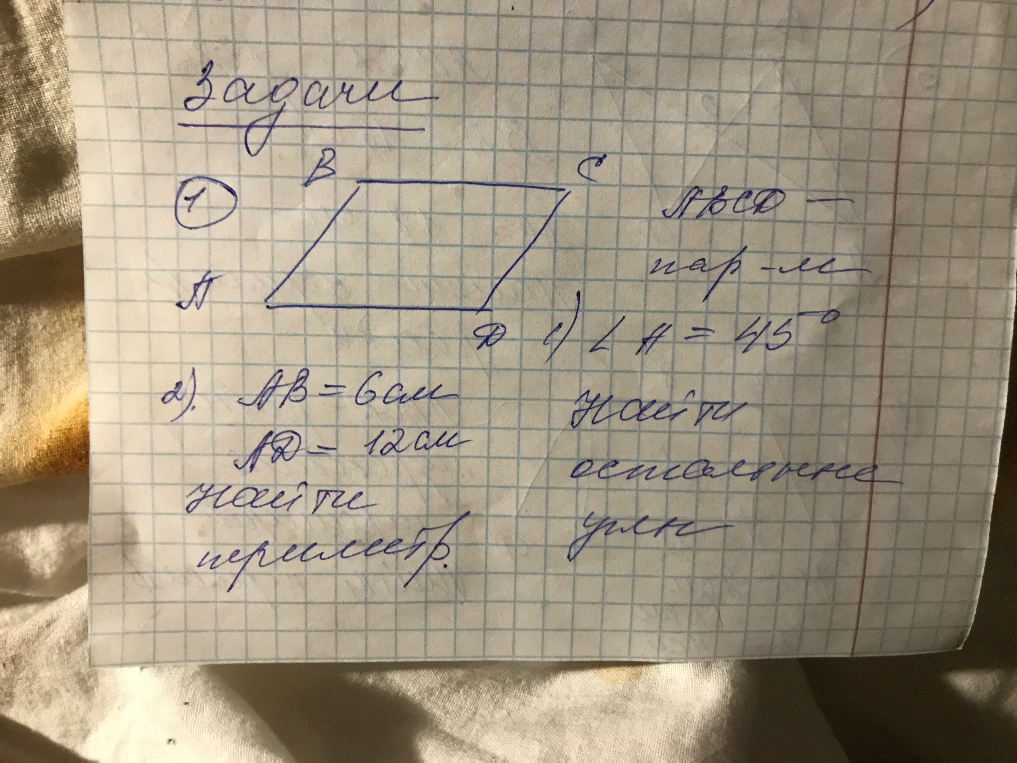 Задачи
1
B
C
A
D
ABCD —
пар-м
1) ∠A = 45°
Найти
остальные
углы
2). AB = 6см
AD = 12см
Найти
периметр.